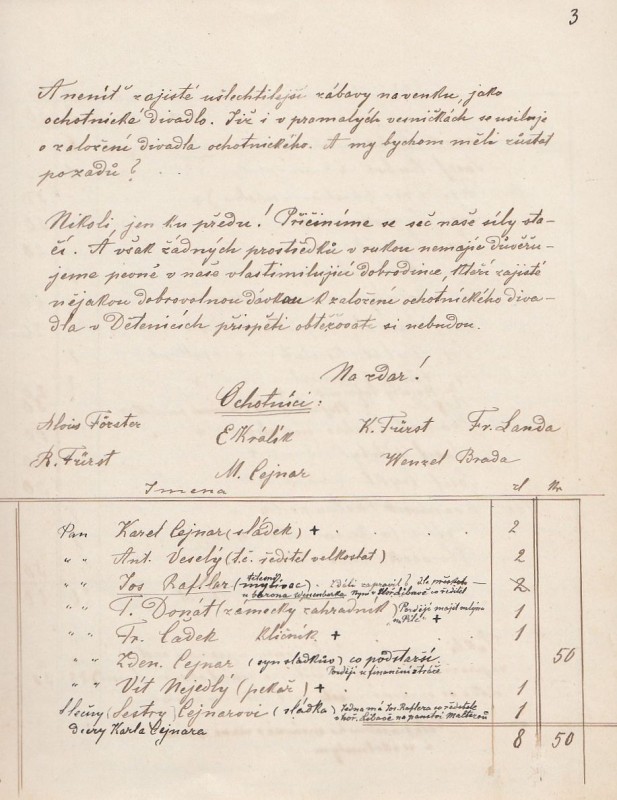 3
A není-liť zajisté ušlechtilejší zábavy na venku, jako
ochotnická divadlo. Již i v pramalých vesničkách se usiluje
o založení divadla ochotnického. A my bychom měli zůstat
pozadů?
Nikoli jen ku předu! Přičiníme se seč naše síly sta-
čí. A však žádných prostředků v rukou nemajíc důvěřu-
jeme pevně v naše vlastimilující dobrodince, kteří zajisté
nějakou dobrovolnou dávkou k založení ochotnického diva-
dla v Dětenicích přispěti obtěžovati si nebudou.
Na zdar!
Ochotníci:
Alois Förster E Králík K. Fürst Fr. Landa
R. Fürst M. Cejnar Wenzel Brada
Jmena zl kr.
Pan Karel Cejnar (sládek) + 2
" " Ant. Veselý (t.č. ředitel velkostat) 2
" " Jos Rafler (myslivec) 2
" " T. Donát (zámecky zahradník) Později majit. mlýna +  1
" " Fr. Čádek klíčník + 1
" " Zden. Cejnar (syn sládkův) co pódstarší 50
Později u finanční stráže
" " Vít Nejedlý (pekář) + 1
Slečny (Sestry) Cejnarovi (sládka) Jedna má Jos. Raflera co ředitele 1
dcery Karla Cejnara
8 50